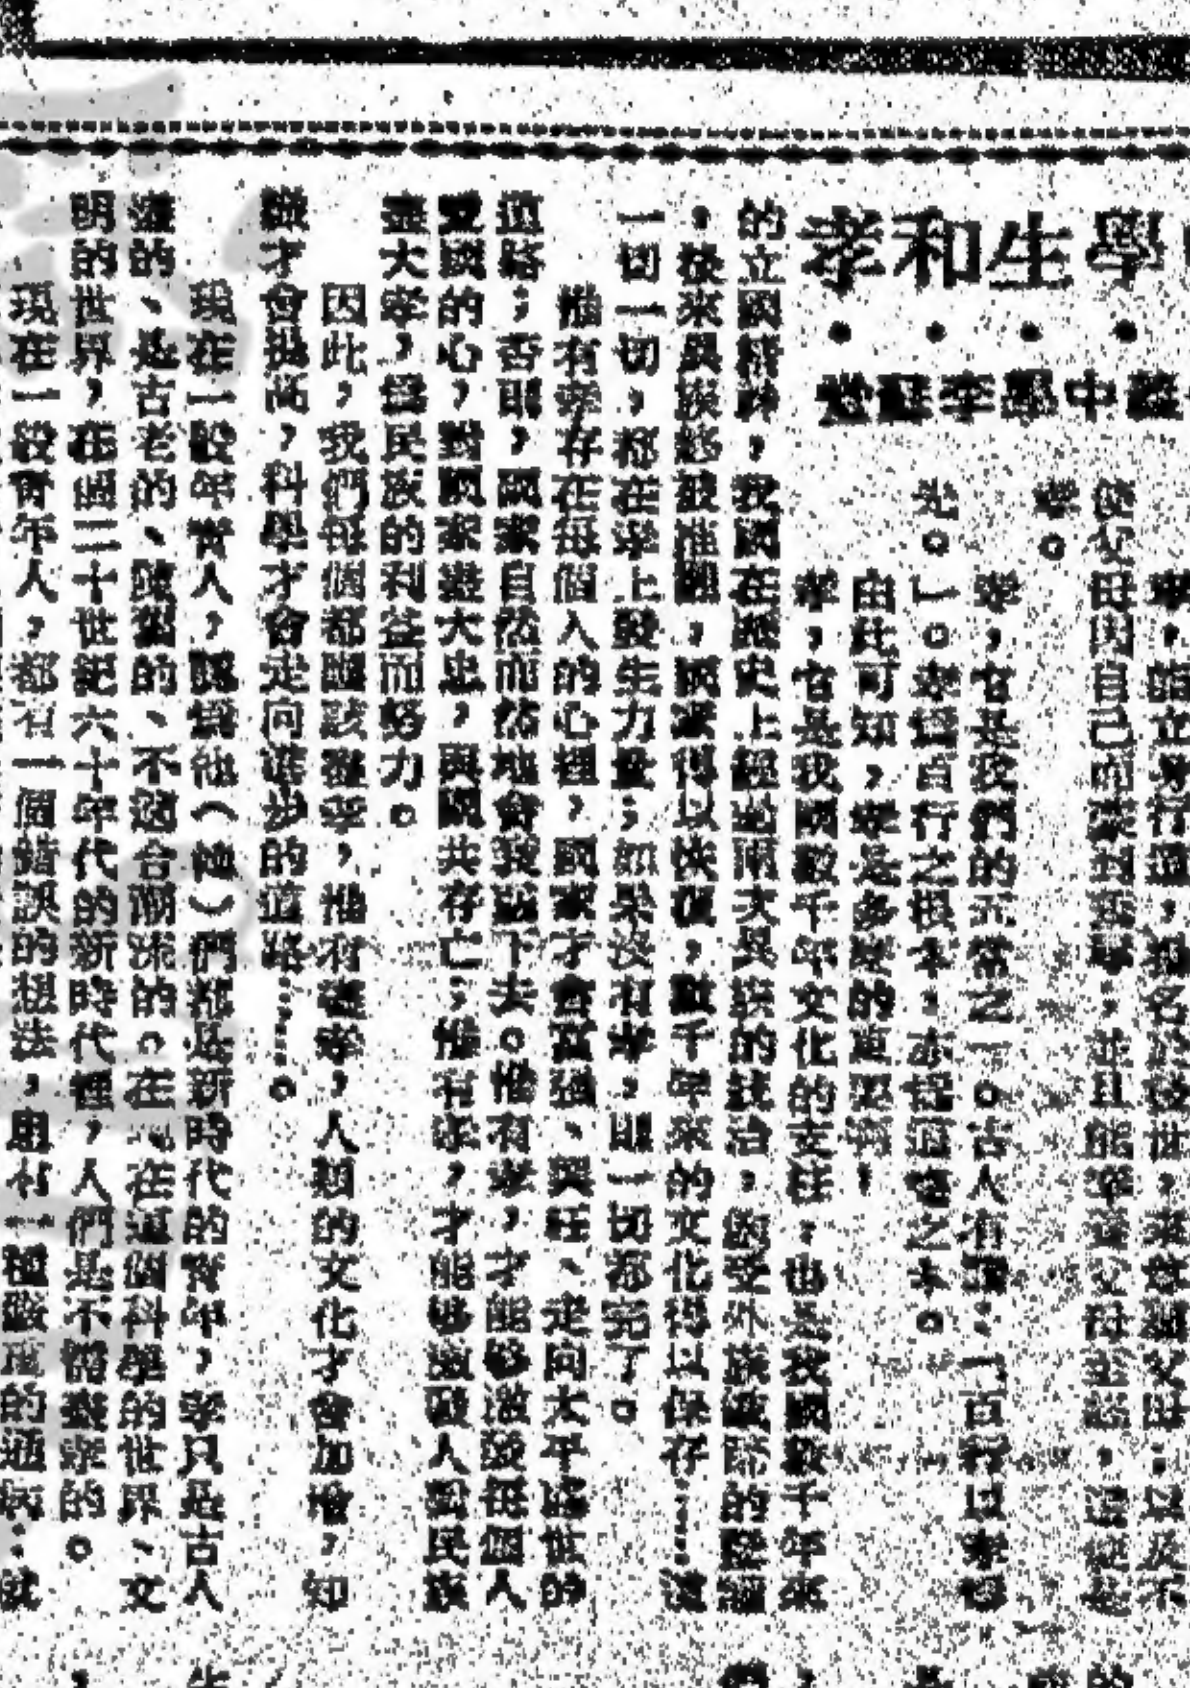 學生和孝
中學李
孝,能立身行道,揚名於後世,來尊顯父母;以及不
使父母因自己而蒙到羞辱,並且能孝養父母至終,這便是
孝。
孝,它是我們的五常之一。古人有謂:「百行以孝為
先。」。孝為百行之根本,亦為道德之本。
由此可知,孝是多麼的重要啊!
孝,它是我國數千年文化的支柱,也是我國數千年來
的立國精神,我國在歷史上經過兩次異族的統治,飽受外族的壓迫
,後來異族被推翻,國家得以恢復,數千年來的文化得以保存……這
一切一切,都在孝上發生力量;如果沒有孝,則一切都完了。
惟有孝存在每個人的心裡,國家才會富強、興旺、走向太平盛世的
道路;否則,國家自然而然地會衰弱下去。惟有孝,才能夠激發每個人
愛國的心,對國家盡大忠,與國共存亡;惟有孝,才能夠激發人為民族
盡大孝,為民族的利益而努力。
因此,我們每個都應該盡孝,惟有盡孝,人類的文化才會加增,知
識才會提高,科學才會走向進步的道路……。
現在一般年青人,認為他(她)們都是新時代的青年,孝只是古人
遵的、是古老的、陳舊的、不適合潮流的。在現在這個科學的世界、文
明的世界,在這二十世紀六十年代的新時代裡,人們是不需要孝的。
現在一般青年人,都有一個錯誤的想法,患有一種嚴重的通病:就